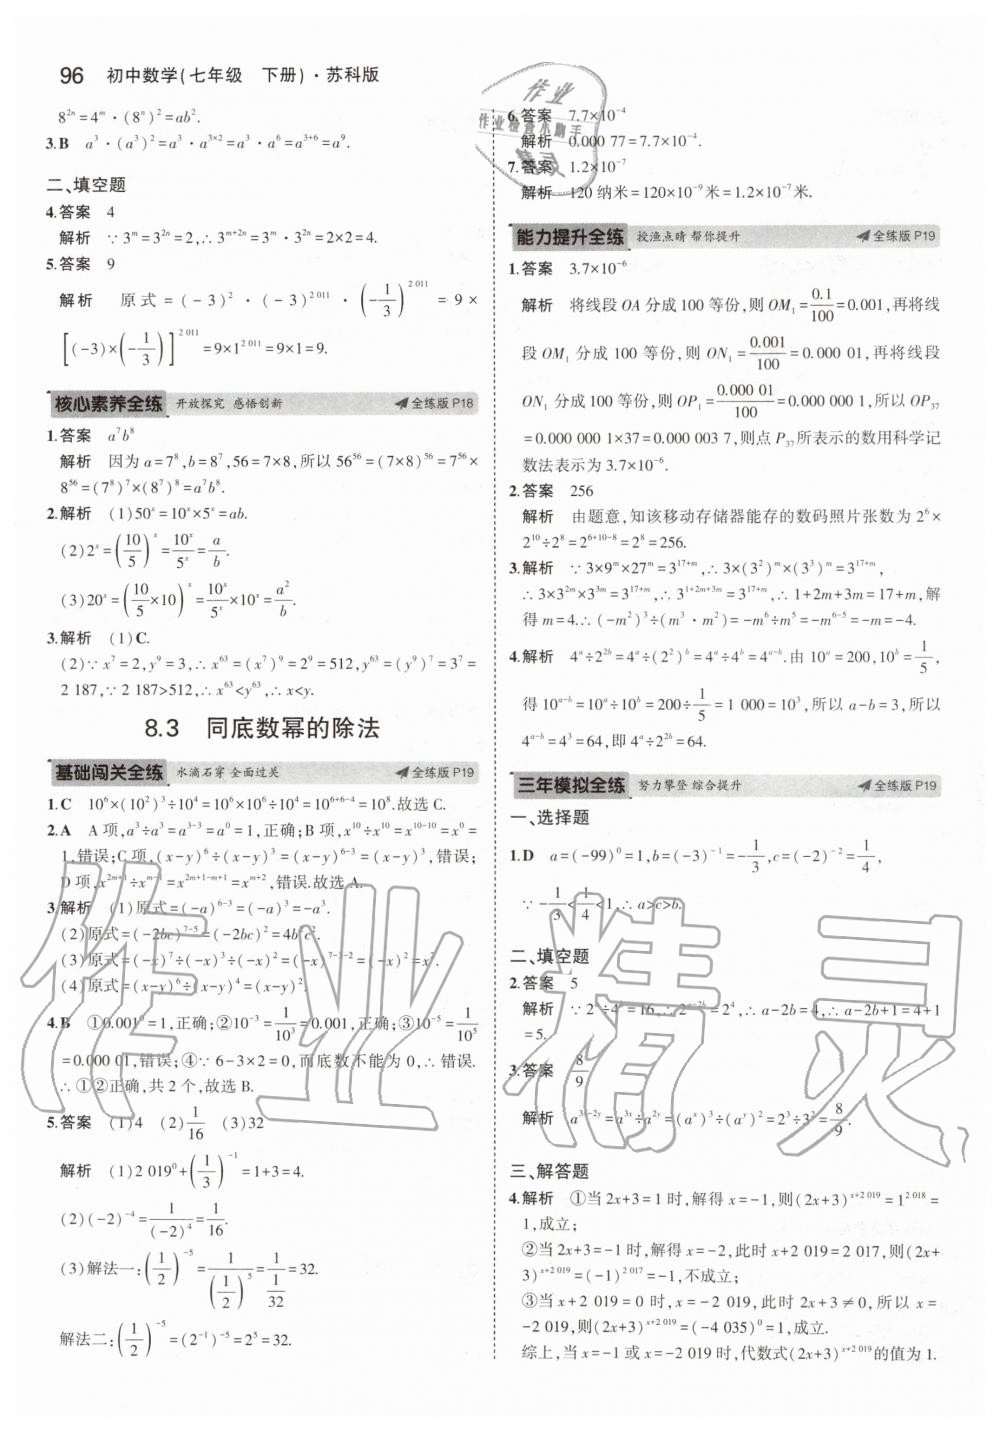 96 初中数学(七年级 下册)·苏科版
8²ⁿ=4ᵐ·(8ⁿ)²=ab².
3.B a³·(a³)²=a³·a³ˣ²=a³·a⁶=a³⁺⁶=a⁹.
二、填空题
4.答案 4
解析 ∵3ᵐ=3²ⁿ=2,∴3ᵐ⁺²ⁿ=3ᵐ·3²ⁿ=2×2=4.
5.答案 9
解析 原式=(-3)²·(-3)^2 011·(-1/3)^2 011=9×
[(-3)×(-1/3)]^2 011=9×1^2 011=9×1=9.
核心素养全练 开放探究 感悟创新 全练版P18
1.答案 a⁷b⁸
解析 因为a=7⁸,b=8⁷,56=7×8,所以56⁵⁶=(7×8)⁵⁶=7⁵⁶×
8⁵⁶=(7⁸)⁷×(8⁷)⁸=a⁷b⁸.
2.解析 (1)50ˣ=10ˣ×5ˣ=ab.
(2)2ˣ=(10/5)ˣ=10ˣ/5ˣ=a/b.
(3)20ˣ=(10/5×10)ˣ=10ˣ/5ˣ×10ˣ=a²/b.
3.解析 (1)C.
(2)∵x⁷=2,y⁹=3,∴x⁶³=(x⁷)⁹=2⁹=512,y⁶³=(y⁹)⁷=3⁷=
2 187,∵2 187>512,∴x⁶³<y⁶³,∴x<y.
8.3 同底数幂的除法
基础闯关全练 水滴石穿 全面过关 全练版P19
1.C 10⁶×(10²)³÷10⁴=10⁶×10⁶÷10⁴=10⁶⁺⁶⁻⁴=10⁸.故选C.
2.A A项,a³÷a³=a³⁻³=a⁰=1,正确;B项,x¹⁰÷x¹⁰=x¹⁰⁻¹⁰=x⁰=
1,错误;C项,(x-y)⁶÷(x-y)³=(x-y)⁶⁻³=(x-y)³,错误;
D项,x²ᵐ⁺¹÷xᵐ⁻¹=x²ᵐ⁺¹⁻ᵐ⁺¹=xᵐ⁺²,错误.故选A.
3.解析 (1)原式=(-a)⁶⁻³=(-a)³=-a³.
(2)原式=(-2bc)⁷⁻⁵=(-2bc)²=4b²c².
(3)原式=(-x)⁷÷(-x)³÷(-x)²=(-x)⁷⁻³⁻²=(-x)²=x².
(4)原式=(x-y)⁶÷(x-y)⁴=(x-y)².
4.B ①0.001⁰=1,正确;②10⁻³=1/10³=0.001,正确;③10⁻⁵=1/10⁵
=0.000 01,错误;④∵6-3×2=0,而底数不能为0,∴错误.
∴①②正确,共2个,故选B.
5.答案 (1)4 (2)1/16 (3)32
解析 (1)2 019⁰+(1/3)⁻¹=1+3=4.
(2)(-2)⁻⁴=1/(-2)⁴=1/16.
(3)解法一:(1/2)⁻⁵=1/(1/2)⁵=1/(1/32)=32.
解法二:(1/2)⁻⁵=(2⁻¹)⁻⁵=2⁵=32.
6.答案 7.7×10⁻⁴
解析 0.000 77=7.7×10⁻⁴.
7.答案 1.2×10⁻⁷
解析 120纳米=120×10⁻⁹米=1.2×10⁻⁷米.
能力提升全练 授渔点睛 帮你提升 全练版P19
1.答案 3.7×10⁻⁶
解析 将线段OA分成100等份,则OM₁=0.1/100=0.001,再将线
段OM₁分成100等份,则ON₁=0.001/100=0.000 01,再将线段
ON₁分成100等份,则OP₁=0.000 01/100=0.000 000 1,所以OP₃₇
=0.000 000 1×37=0.000 003 7,则点P₃₇所表示的数用科学记
数法表示为3.7×10⁻⁶.
2.答案 256
解析 由题意,知该移动存储器能存的数码照片张数为2⁶×
2¹⁰÷2⁸=2⁶⁺¹⁰⁻⁸=2⁸=256.
3.解析 ∵3×9ᵐ×27ᵐ=3¹⁷⁺ᵐ,∴3×(3²)ᵐ×(3³)ᵐ=3¹⁷⁺ᵐ,
∴3×3²ᵐ×3³ᵐ=3¹⁷⁺ᵐ,∴3¹⁺²ᵐ⁺³ᵐ=3¹⁷⁺ᵐ,∴1+2m+3m=17+m,解
得m=4.∴(-m²)³÷(m³·m²)=-m⁶÷m⁵=-m⁶⁻⁵=-m=-4.
4.解析 4ᵃ÷2²ᵇ=4ᵃ÷(2²)ᵇ=4ᵃ÷4ᵇ=4ᵃ⁻ᵇ.由10ᵃ=200,10ᵇ=1/5,
得10ᵃ⁻ᵇ=10ᵃ÷10ᵇ=200÷1/5=1 000=10³,所以a-b=3,所以
4ᵃ⁻ᵇ=4³=64,即4ᵃ÷2²ᵇ=64.
三年模拟全练 努力攀登 综合提升 全练版P19
一、选择题
1.D a=(-99)⁰=1,b=(-3)⁻¹=-1/3,c=(-2)⁻²=1/4,
∵-1/3<1/4<1,∴a>c>b.
二、填空题
2.答案 5
解析 ∵2ᵃ÷4ᵇ=16,∴2ᵃ⁻²ᵇ=2⁴,∴a-2b=4,∴a-2b+1=4+1
=5.
3.答案 8/9
解析 a³ˣ⁻²ʸ=a³ˣ÷a²ʸ=(aˣ)³÷(aʸ)²=2³÷3²=8/9.
三、解答题
4.解析 ①当2x+3=1时,解得x=-1,则(2x+3)^x+2 019=1^2 018=
1,成立;
②当2x+3=-1时,解得x=-2,此时x+2 019=2 017,则(2x+
3)^x+2 019=(-1)^2 017=-1,不成立;
③当x+2 019=0时,x=-2 019,此时2x+3≠0,所以x=
-2 019,则(2x+3)^x+2 019=(-4 035)⁰=1,成立.
综上,当x=-1或x=-2 019时,代数式(2x+3)^x+2 019的值为1.
作业
作业检查小助手
精灵
作业精灵